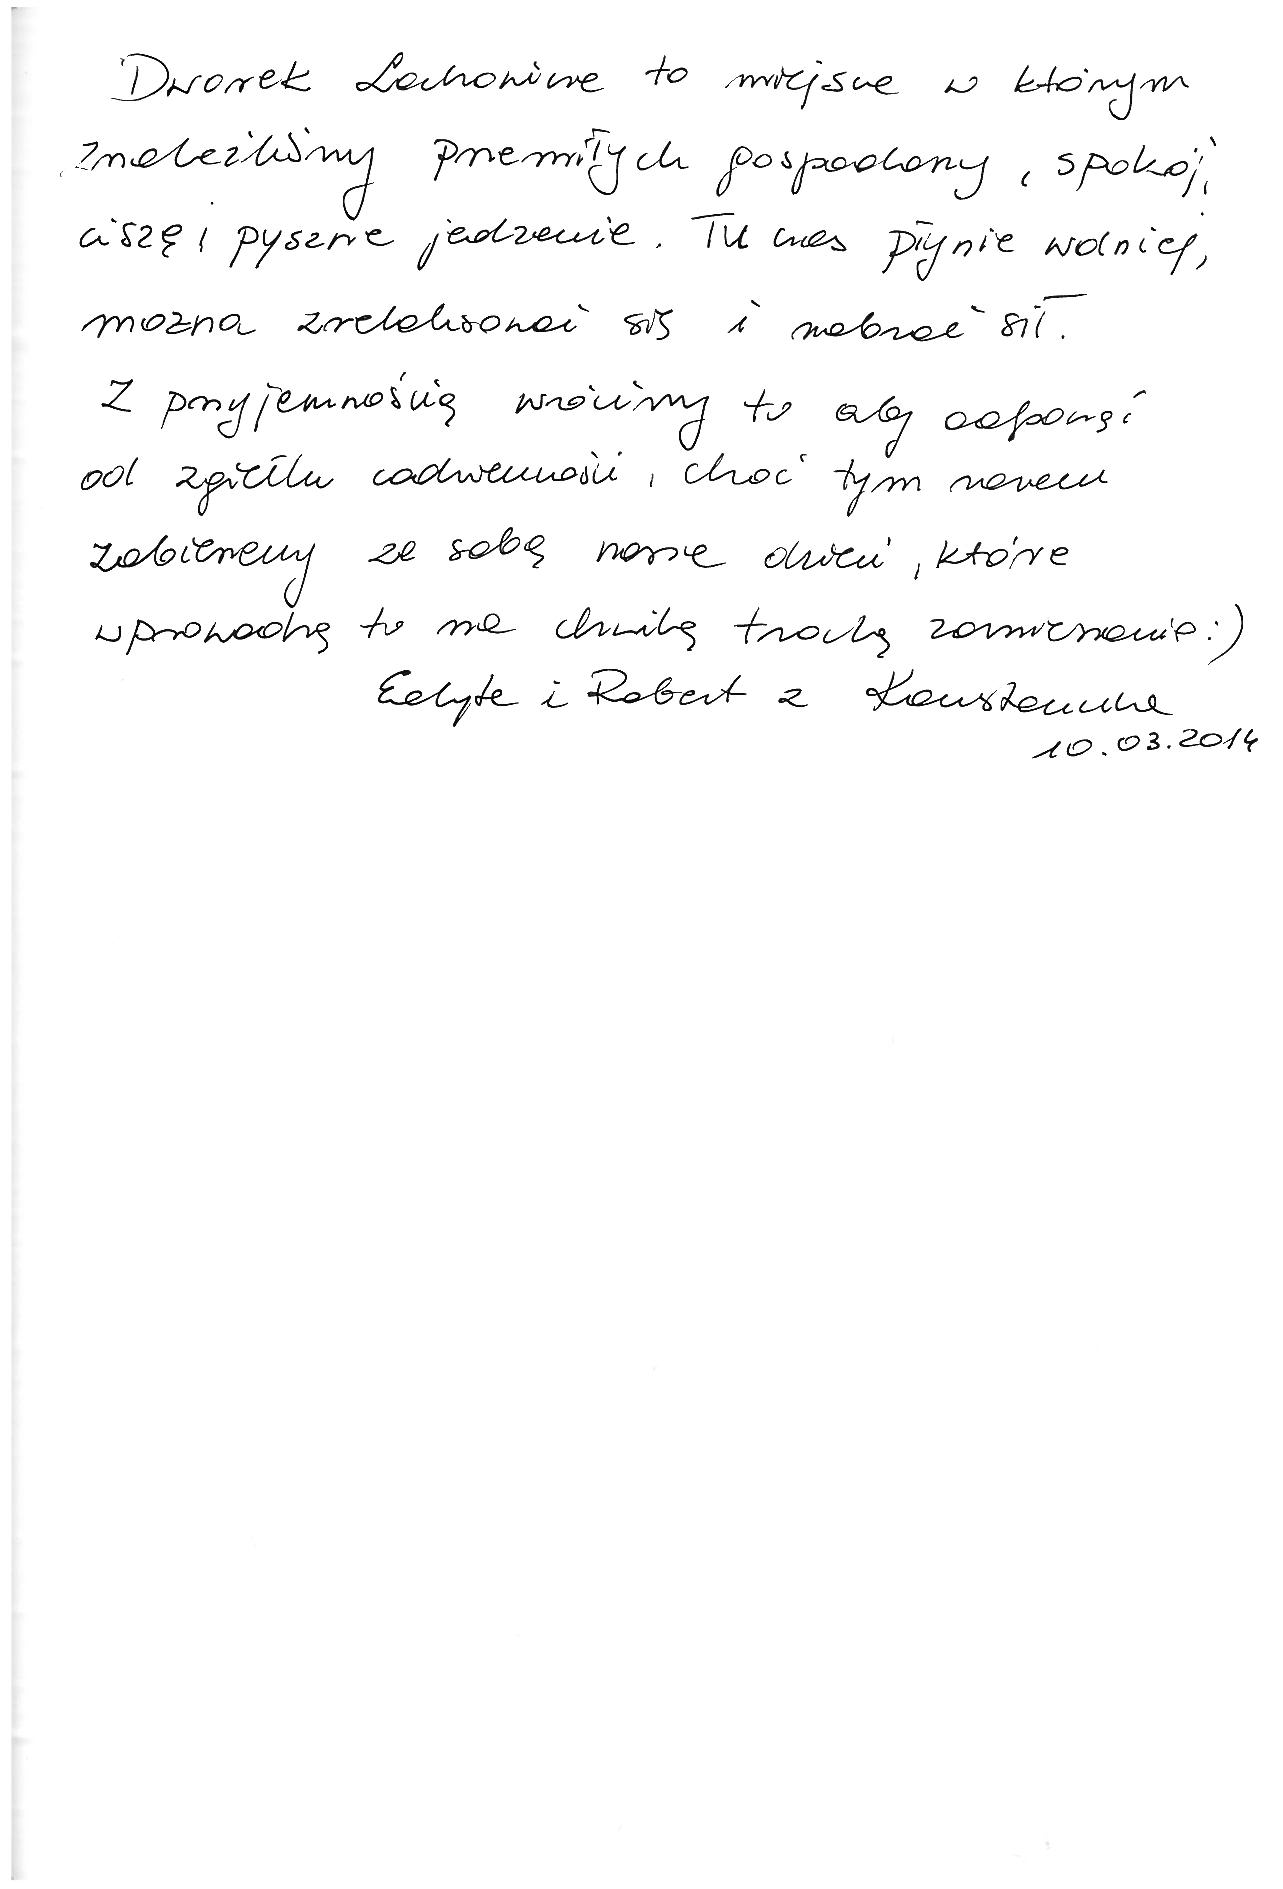 Dworek Lachowinie to miejsce w którym
znaleźliśmy przemiłych gospodarzy, spokój,
ciszę i pyszne jedzenie. Tu czas płynie wolniej,
można zrelaksować się i nabrać sił.
Z przyjemnością wrócimy tu aby odpocząć
od zgiełku codzienności, choć tym razem
zabierzemy ze sobą nasze dzieci, które
wprowadzą tu na chwilę trochę zamieszanie :)
Edyta i Robert z Konstancina
10.03.2014